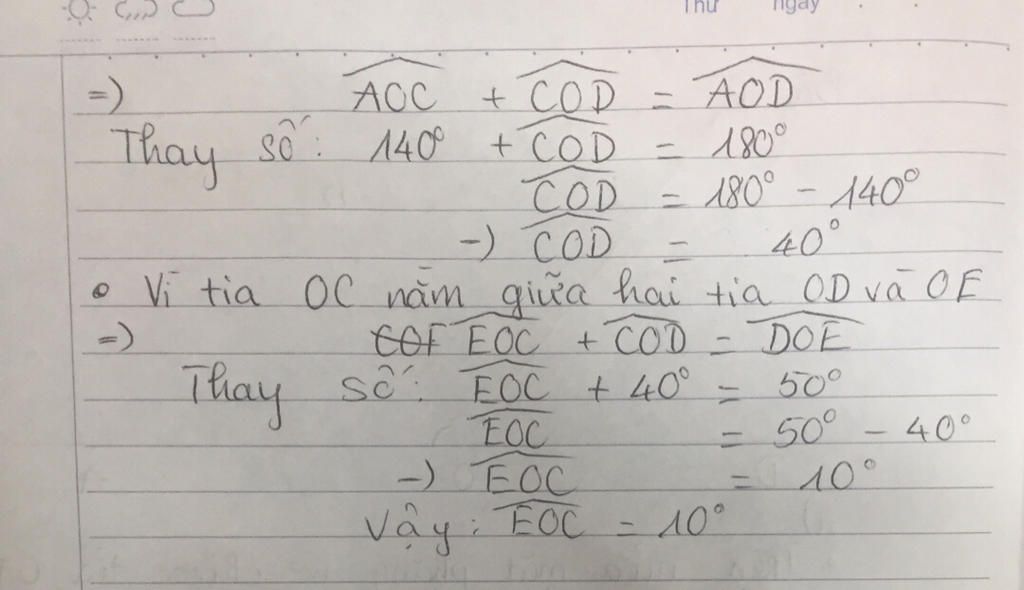 Thứ ngày
=) AOC + COD = AOD
Thay số: 140° + COD = 180°
COD = 180° - 140°
-) COD = 40°
• Vì tia OC nằm giữa hai tia OD và OE
=) COF EOC + COD = DOE
Thay số: EOC + 40° = 50°
EOC = 50° - 40°
-) EOC = 10°
Vậy: EOC = 10°